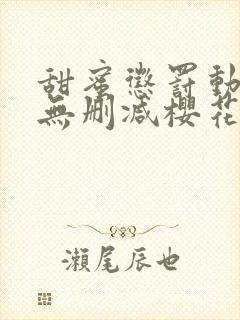 甜蜜懲罰動
無刪減櫻花
瀨尾辰也